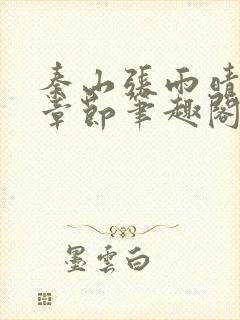 秦山張雨晴
章節筆趣閣
墨雲白